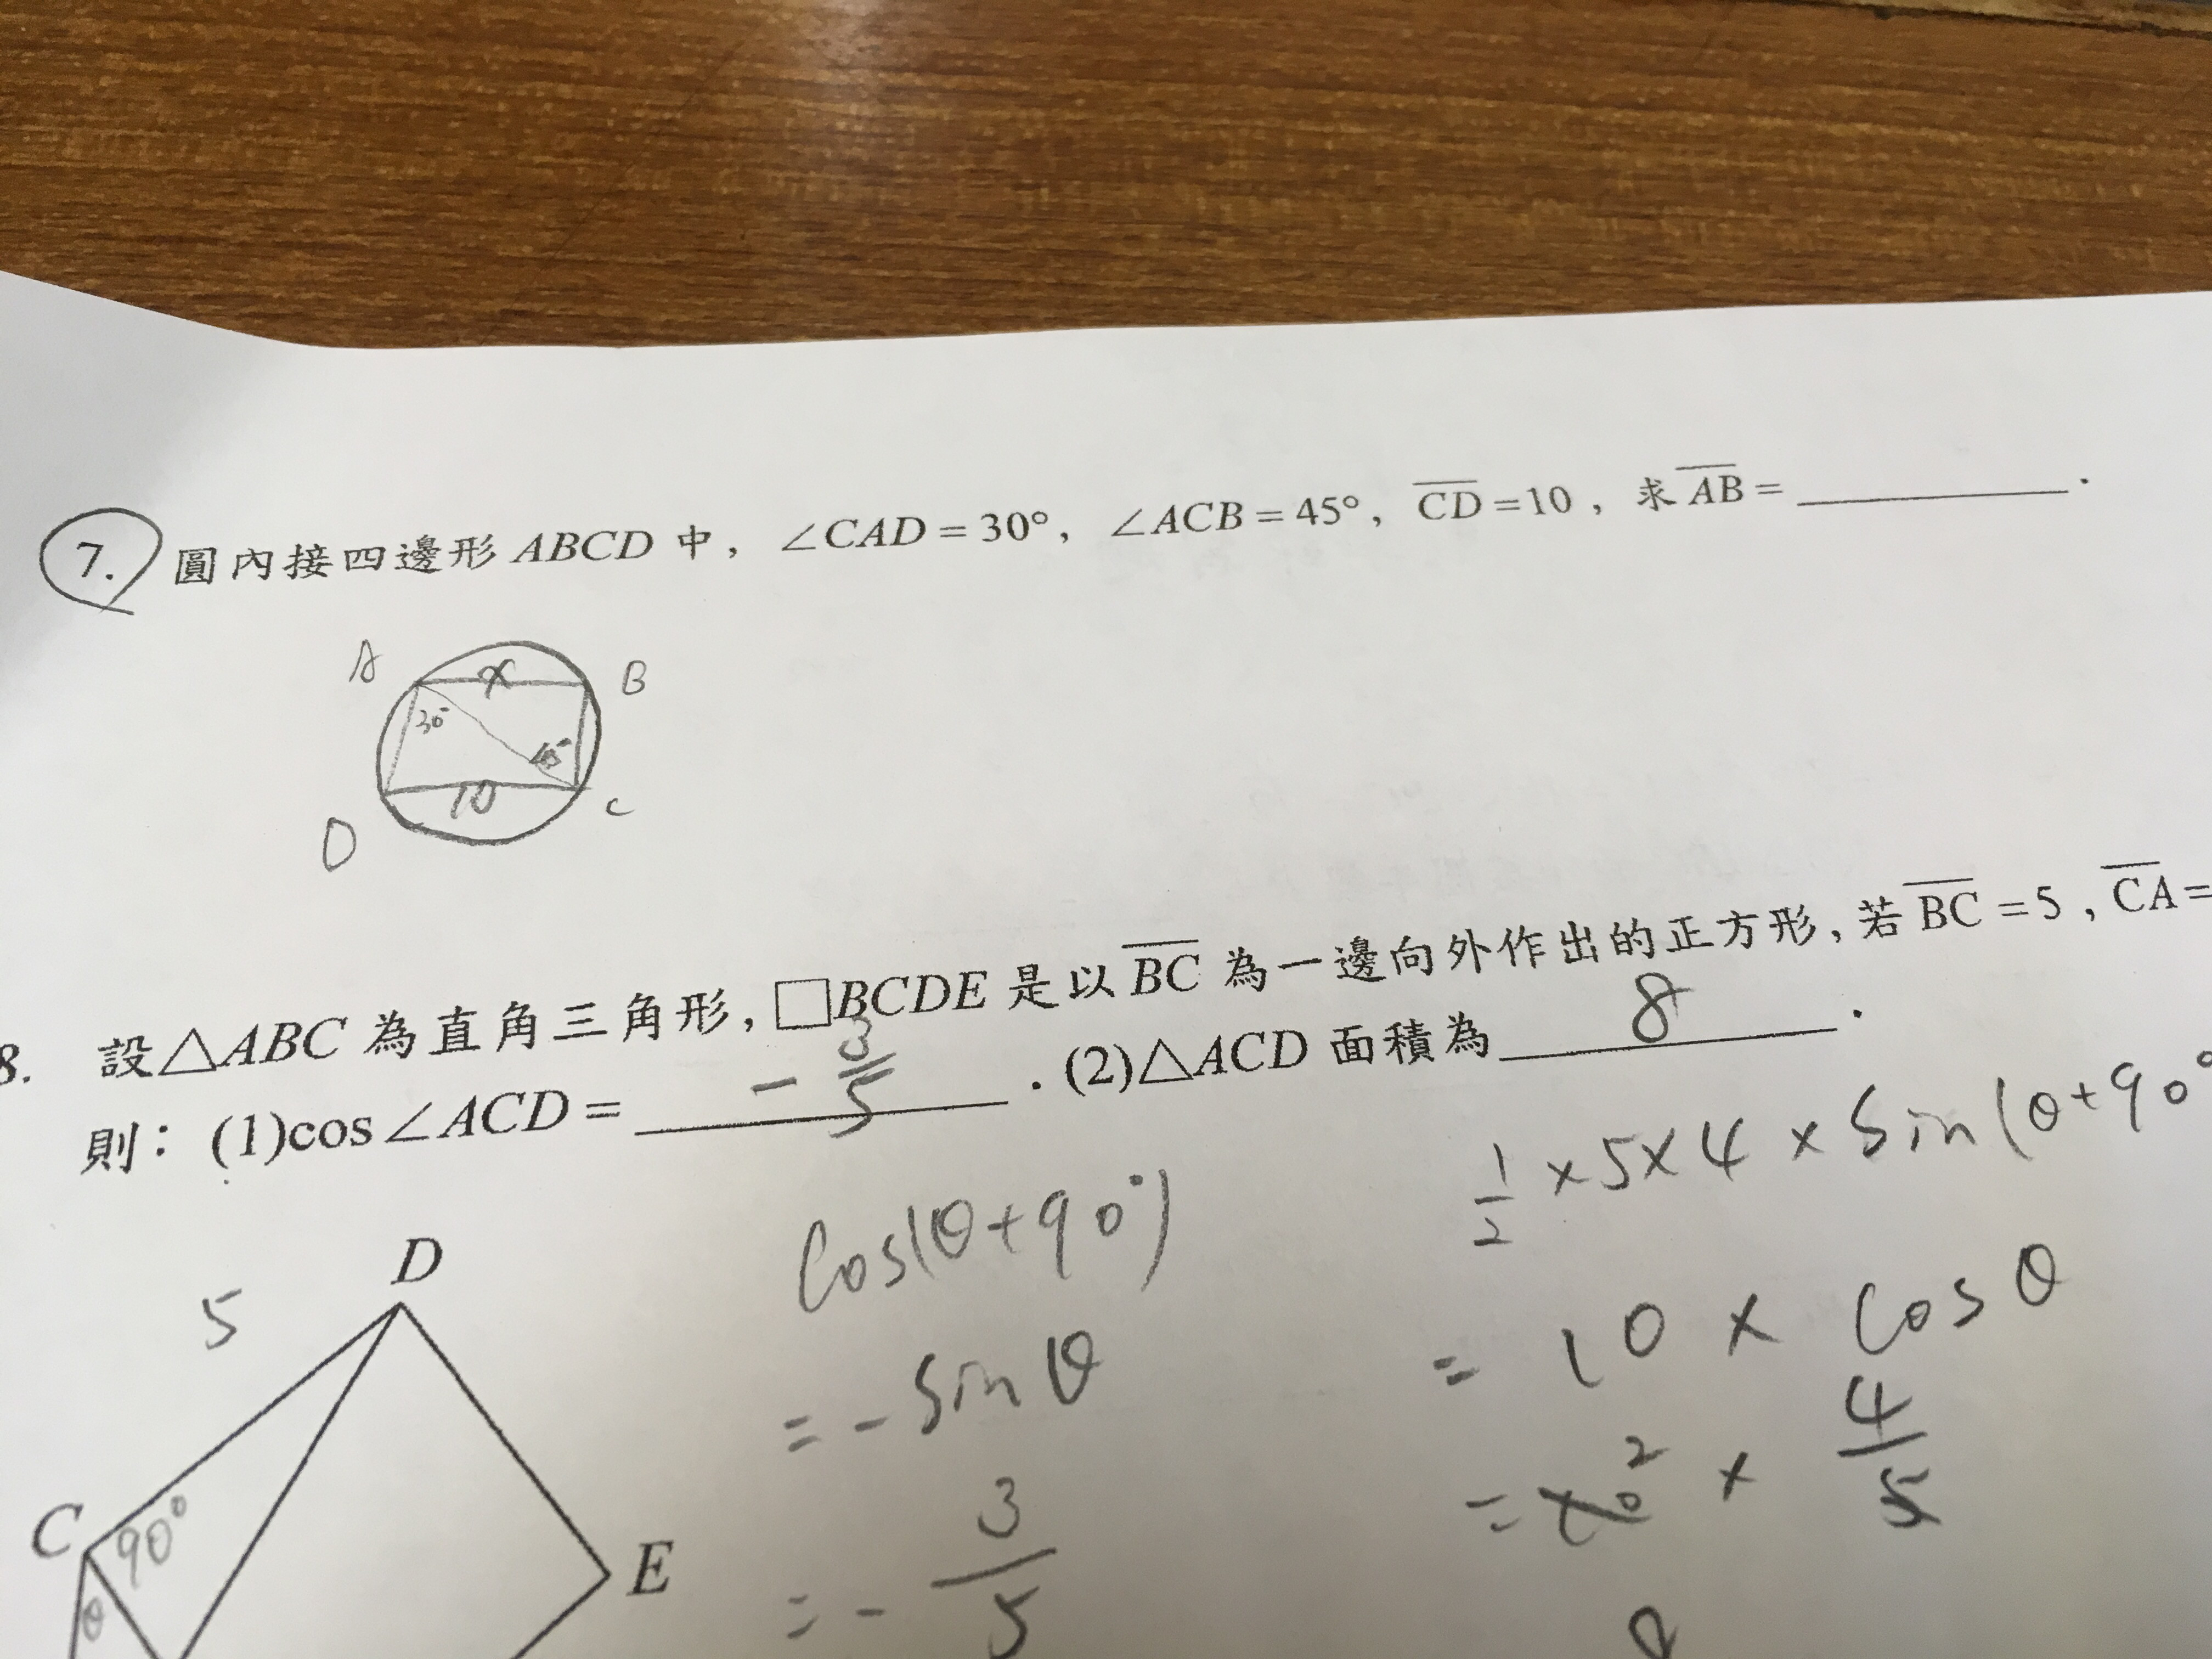 7. 圓內接四邊形 ABCD 中, ∠CAD = 30°, ∠ACB = 45°, CD = 10, 求 AB = ______.
A x B
30° 45°
10
D C
8. 設△ABC 為直角三角形, □BCDE 是以 BC 為一邊向外作出的正方形, 若 BC = 5, CA =
則: (1)cos∠ACD = -3/5 . (2)△ACD 面積為 8 .
cos(θ+90°)
= -sinθ
= -3/5
1/2 × 5 × 4 × sin(θ+90°
= 10 × cosθ
= 10 2 × 4/5
5
D
C 90°
θ
E